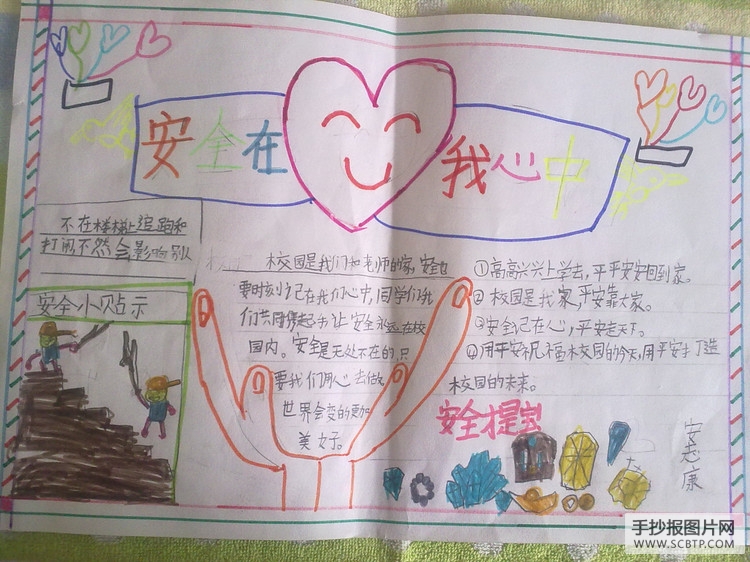 安全在我心中
不在楼梯上追跑和
打闹不然会影响别人
安全小贴示
校园是我们和老师的家,安全也
要时刻记在我们心中,同学们我
们共同携起手让安全永远在校
园内。安全是无处不在的,只
要我们用心去做,
世界会变的更加
美好。
①高高兴兴上学去,平平安安回到家。
②校园是我家,平安靠大家。
③安全记在心,平安走天下。
④用平安祝福校园的今天,用平安打造
校园的未来。
安全提宝
安志康
手抄报图片网
WWW.SCBTP.COM